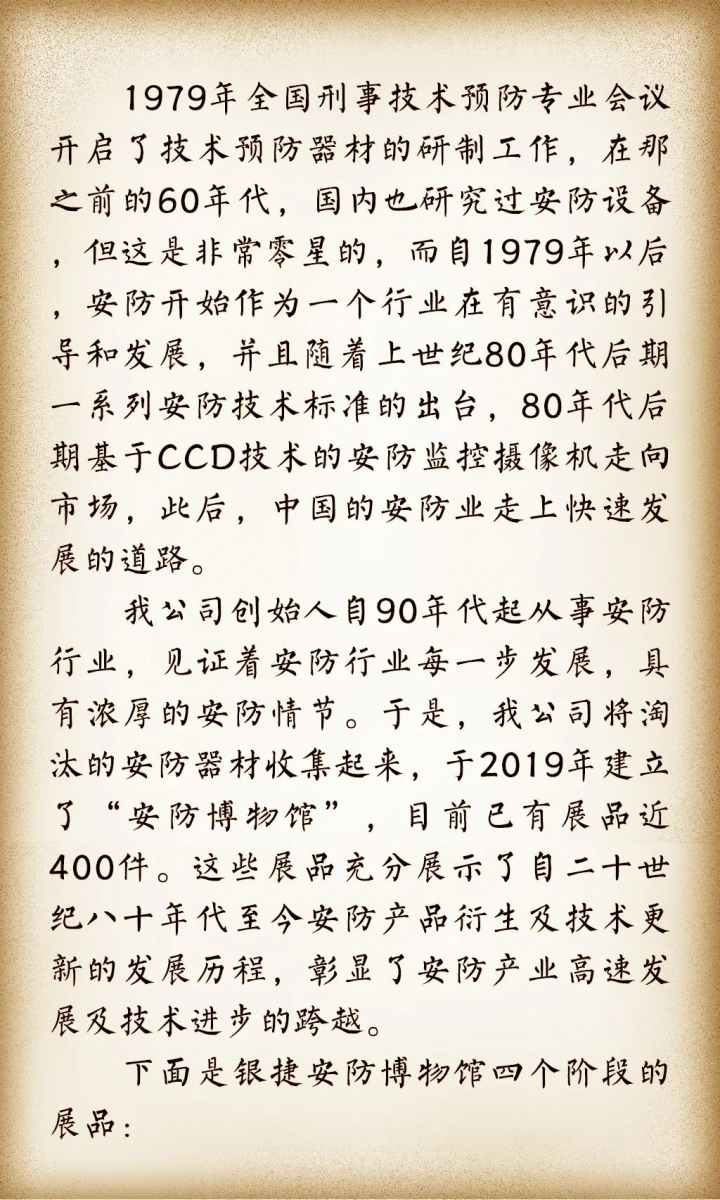 1979年全国刑事技术预防专业会议
开启了技术预防器材的研制工作，在那
之前的60年代，国内也研究过安防设备
，但这是非常零星的，而自1979年以后
，安防开始作为一个行业在有意识的引
导和发展，并且随着上世纪80年代后期
一系列安防技术标准的出台，80年代后
期基于CCD技术的安防监控摄像机走向
市场，此后，中国的安防业走上快速发
展的道路。
我公司创始人自90年代起从事安防
行业，见证着安防行业每一步发展，具
有浓厚的安防情节。于是，我公司将淘
汰的安防器材收集起来，于2019年建立
了“安防博物馆”，目前已有展品近
400件。这些展品充分展示了自二十世
纪八十年代至今安防产品衍生及技术更
新的发展历程，彰显了安防产业高速发
展及技术进步的跨越。
下面是银捷安防博物馆四个阶段的
展品：